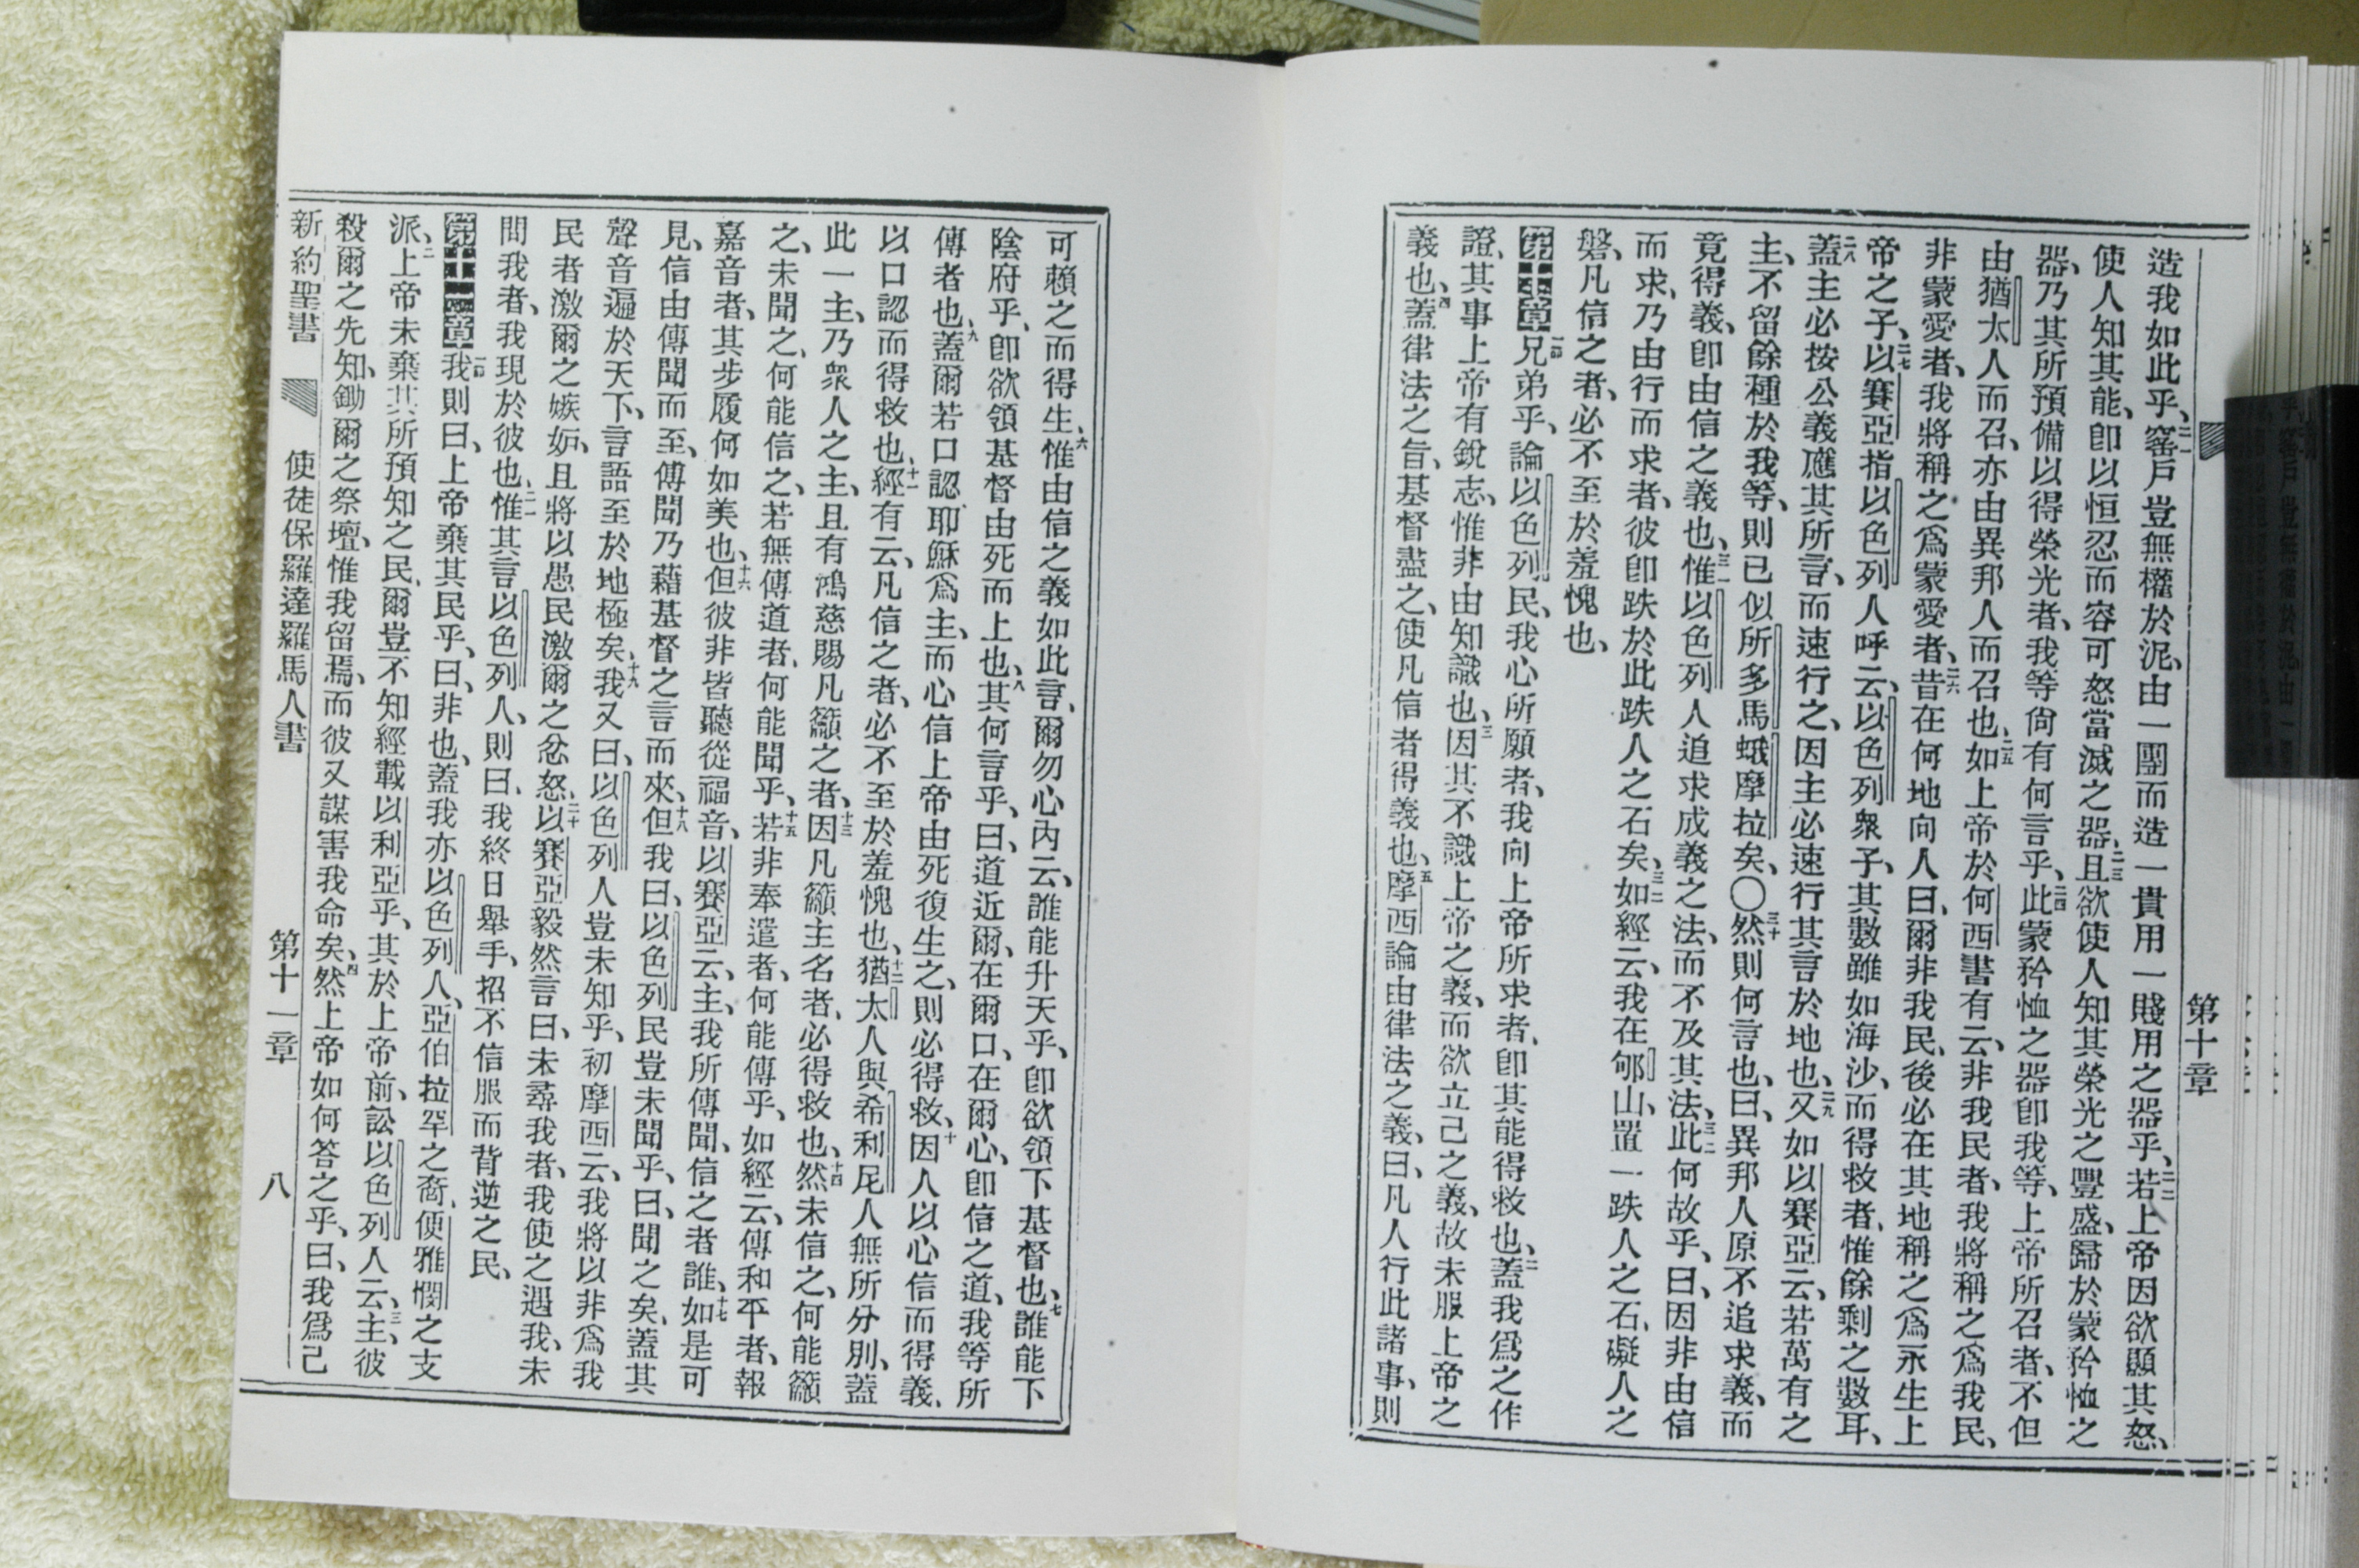 第十章
造我如此乎、二一窰戶豈無權於泥、由一團而造一貴用一賤用之器乎、二二若上帝因欲顯其怒、
使人知其能、卽以恒忍而容可怒當滅之器、二三且欲使人知其榮光之豐盛、歸於蒙矜恤之
器、乃其所預備以得榮光者、我等尙有何言乎、二四此蒙矜恤之器卽我等、上帝所召者、不但
由猶太人而召、亦由異邦人而召也、二五如上帝於何西書有云、非我民者、我將稱之爲我民、
非蒙愛者、我將稱之爲蒙愛者、二六昔在何地向人曰、爾非我民、後必在其地稱之爲永生上
帝之子、二七以賽亞指以色列人呼云、以色列衆子、其數雖如海沙、而得救者、惟餘剩之數耳、
二八蓋主必按公義應其所言、而速行之、因主必速行其言於地也、二九又如以賽亞云、若萬有之
主、不留餘種於我等、則已似所多馬蛾摩拉矣、〇三十然則何言也、曰、異邦人原不追求義、而
竟得義、卽由信之義也、三一惟以色列人追求成義之法、而不及其法、三二此何故乎、曰、因非由信
而求、乃由行而求者、彼卽跌於此跌人之石矣、三三如經云、我在郇山、置一跌人之石、礙人之
磐、凡信之者、必不至於羞愧也、
第十章一節兄弟乎、論以色列民、我心所願者、我向上帝所求者、卽其能得救也、二蓋我爲之作
證、其事上帝有銳志、惟非由知識也、三因其不識上帝之義、而欲立己之義、故未服上帝之
義也、四蓋律法之旨、基督盡之、使凡信者得義也、五摩西論由律法之義、曰、凡人行此諸事、則
可賴之而得生、六惟由信之義如此言、爾勿心內云、誰能升天乎、卽欲領下基督也、七誰能下
陰府乎、卽欲領基督由死而上也、八其何言乎、曰、道近爾、在爾口、在爾心、卽信之道、我等所
傳者也、九蓋爾若口認耶穌爲主、而心信上帝由死復生之、則必得救、十因人以心信而得義、
以口認而得救也、十一經有云、凡信之者、必不至於羞愧也、十二猶太人與希利尼人無所分別、蓋
此一主、乃衆人之主、且有鴻慈賜凡籲之者、十三因凡籲主名者、必得救也、十四然未信之、何能籲
之、未聞之、何能信之、若無傳道者、何能聞乎、十五若非奉遣者、何能傳乎、如經云、傳和平者、報
嘉音者、其步履何如美也、十六但彼非皆聽從福音、以賽亞云、主、我所傳聞、信之者誰、十七如是可
見、信由傳聞而至、傳聞乃藉基督之言而來、十八但我曰、以色列民豈未聞乎、曰、聞之矣、蓋其
聲音遍於天下、言語至於地極矣、十九我又曰、以色列人豈未知乎、初摩西云、我將以非爲我
民者激爾之嫉妬、且將以愚民激爾之忿怒、二十以賽亞毅然言曰、未尋我者、我使之遇我、未
問我者、我現於彼也、二一惟其言以色列人、則曰、我終日舉手、招不信服而背逆之民、
第十一章一節我則曰、上帝棄其民乎、曰、非也、蓋我亦以色列人、亞伯拉罕之裔、便雅憫之支
派、二上帝未棄其所預知之民、爾豈不知經載以利亞乎、其於上帝前、訟以色列人云、三主、彼
殺爾之先知、鋤爾之祭壇、惟我留焉、而彼又謀害我命矣、四然上帝如何答之乎、曰、我爲己
新約聖書 使徒保羅達羅馬人書 第十一章 八